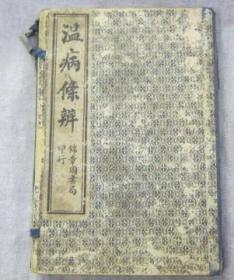 溫病條辨
錦章圖書局
印行